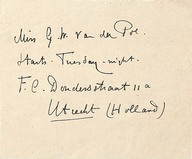 Miss G. W. van der Poe.
Starts. Tuesday-night.
F. C. Dondersstraat 11a
Utrecht (Holland)